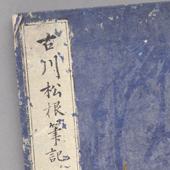 古川松根筆記